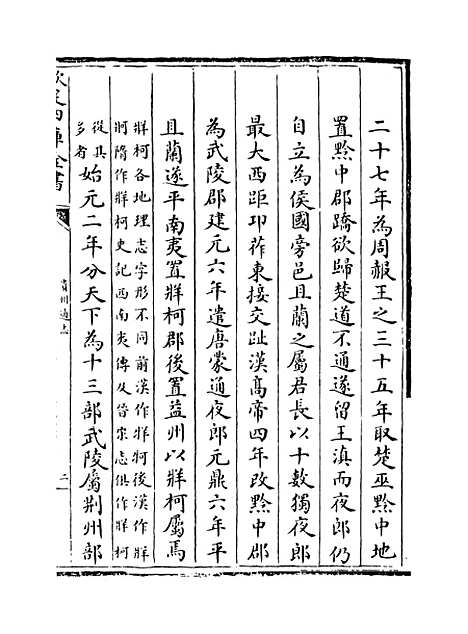 二十七年為周赧王之三十五年取楚巫黔中地
置黔中郡蹻欲歸楚道不通遂留王滇而夜郎仍
自立為侯國旁邑且蘭之屬君長以十數獨夜郎
最大西距卭莋東接交趾漢髙帝四年改黔中郡
為武陵郡建元六年遣唐蒙通夜郎元鼎六年平
且蘭遂平南夷置牂柯郡後置益州以牂柯屬焉
牂柯各地理志字形不同前漢作牂牁後漢作牂
牁隋作牂柯史記西南夷傳及晉宋志俱作牂柯
從其
多者
始元二年分天下為十三部武陵屬荆州部
欽定四庫全書
貴州通志
二